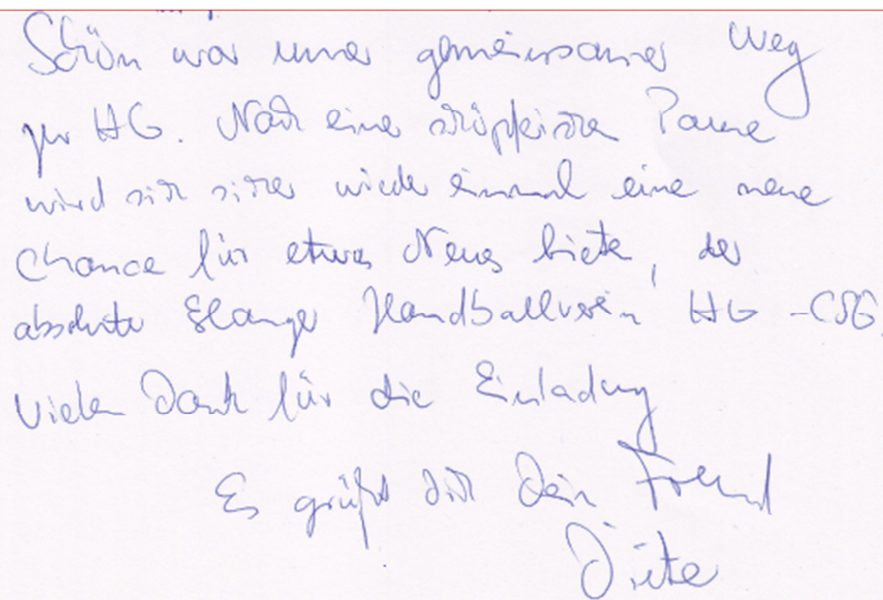 Schön war unser gemeinsamer Weg
zur HG. Nach einer schöpferischen Pause
wird sich sicher wieder einmal eine neue
Chance für etwas Neues bieten, der
absolute Erlanger Handballverein HG - CSG.
Vielen Dank für die Einladung
Es grüßt dich Dein Freund
Dieter